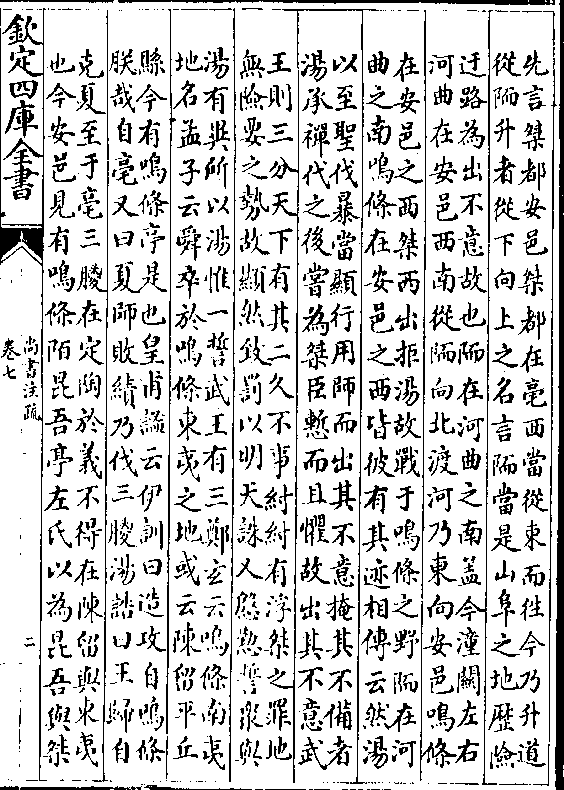 先言桀都安邑桀都在亳西當從東而往今乃升道
從陑升者從下向上之名言陑當是山阜之地歷險
迂路為出不意故也陑在河曲之南盖今潼關左右
河曲在安邑西南從陑向北渡河乃東向安邑鳴條
在安邑之西桀西出拒湯故戰于鳴條之野陑在河
曲之南鳴條在安邑之西皆彼有其迹相傳云然湯
以至聖伐暴當顯行用師而出其不意掩其不備者
湯承禪代之後嘗為桀臣慙而且懼故出其不意武
王則三分天下有其二久不事紂紂有浮桀之罪地
無險要之勢故顯然致罰以明天誅又慇懃誓衆與
湯有異所以湯惟一誓武王有三鄭玄云鳴條南夷
地名孟子云舜卒於鳴條東夷之地或云陳留平丘
縣今有鳴條亭是也皇甫謐云伊訓曰造攻自鳴條
朕哉自亳又曰夏師敗績乃伐三朡湯誥曰王歸自
克夏至于亳三朡在定陶於義不得在陳留與東夷
也今安邑見有鳴條陌昆吾亭左氏以為昆吾與桀
欽定四庫全書
尚書注疏
卷七
二